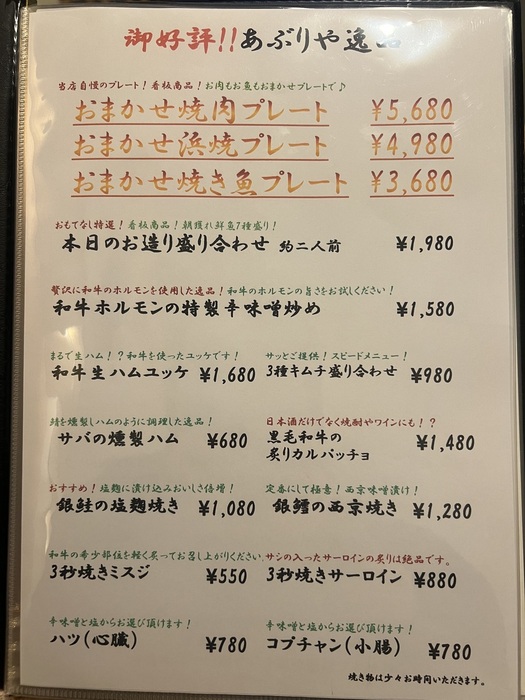 御好評!!あぶりや逸品
当店自慢のプレート！看板商品！お肉もお魚もおまかせプレートで♪
おまかせ焼肉プレート ¥5,680
おまかせ浜焼プレート ¥4,980
おまかせ焼き魚プレート ¥3,680
おもてなし特選！看板商品！朝獲れ鮮魚7種盛り！
本日のお造り盛り合わせ 約二人前 ¥1,980
贅沢に和牛のホルモンを使用した逸品！和牛のホルモンの旨さをお試しください！
和牛ホルモンの特製辛味噌炒め ¥1,580
まるで生ハム！？和牛を使ったユッケです！
和牛生ハムユッケ ¥1,680
サッとご提供！スピードメニュー！
3種キムチ盛り合わせ ¥980
鯖を燻製しハムのように調理した逸品！
サバの燻製ハム ¥680
日本酒だけでなく焼酎やワインにも！？
黒毛和牛の
炙りカルパッチョ ¥1,480
おすすめ！塩麹に漬け込みおいしさ倍増！
銀鮭の塩麹焼き ¥1,080
定番にして極意！西京味噌漬け！
銀鱈の西京焼き ¥1,280
和牛の希少部位を軽く炙ってお召し上がりください。
3秒焼きミスジ ¥550
サシの入ったサーロインの炙りは絶品です。
3秒焼きサーロイン ¥880
辛味噌と塩からお選び頂けます！
ハツ(心臓) ¥780
辛味噌と塩からお選び頂けます！
コプチャン(小腸) ¥780
焼き物は少々お時間いただきます。